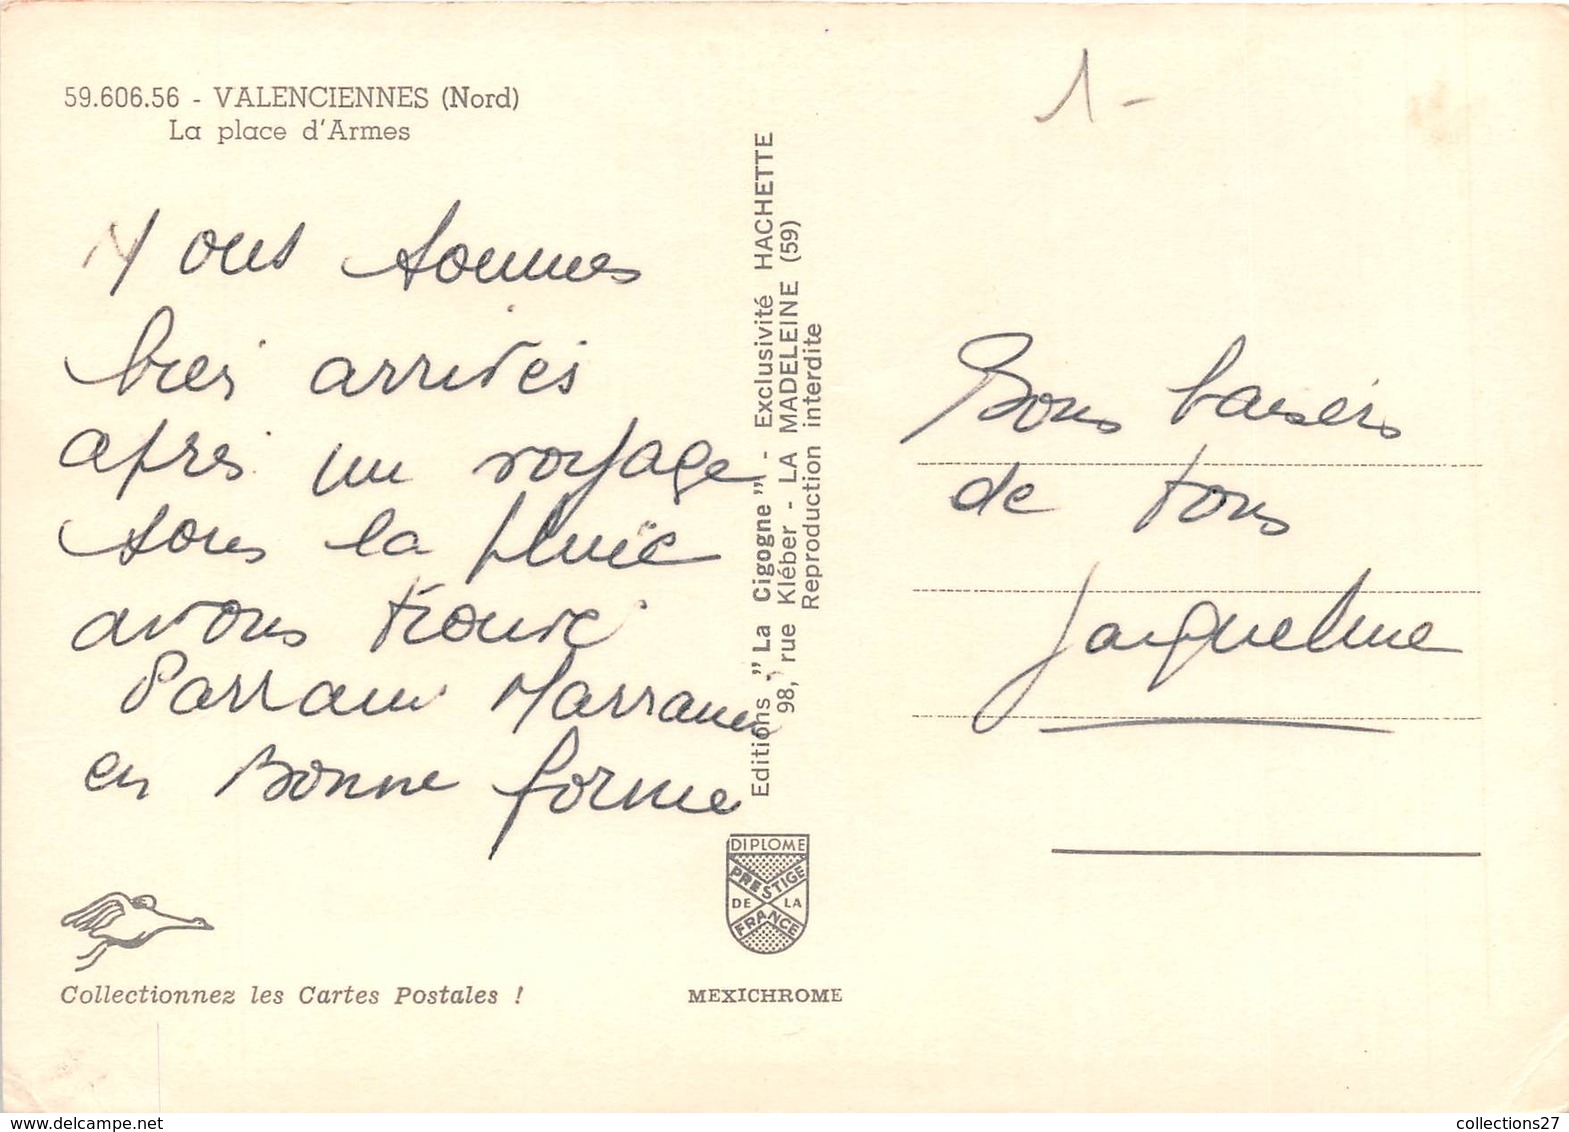 59.606.56 - VALENCIENNES (Nord)
La place d'Armes
1-
Nous sommes
bien arrivés
après un voyage
sous la pluie
avons trouvé
Parrain Marraine
en Bonne forme
Editions - "La Cigogne" - Exclusivité HACHETTE
98, rue Kléber - LA MADELEINE (59)
Reproduction interdite
Bons baisers
de tous
Jacqueline
DIPLOME
PRESTIGE
DE LA
FRANCE
Collectionnez les Cartes Postales !
MEXICHROME
collections27
www.delcampe.net